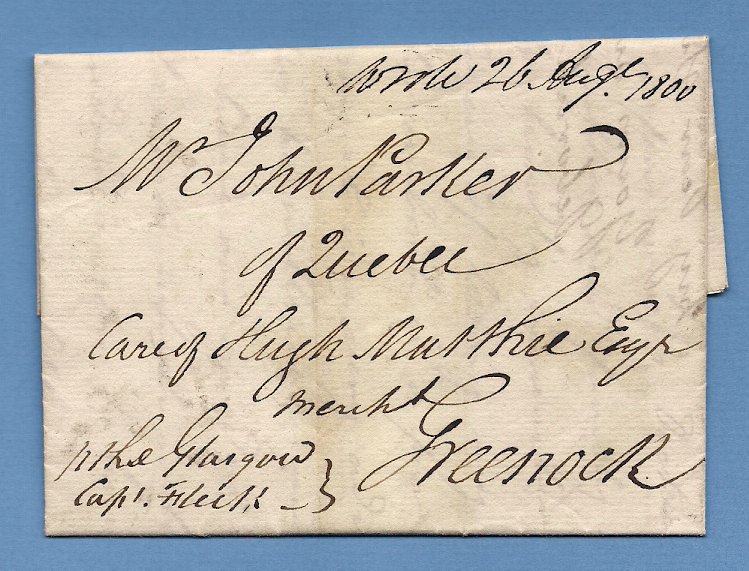 wrote 26 Augt. 1800
Mr John Parker
of Quebec
Care of Hugh Matthie Esqr
mercht
Greenock
p the Glasgow
Capt.